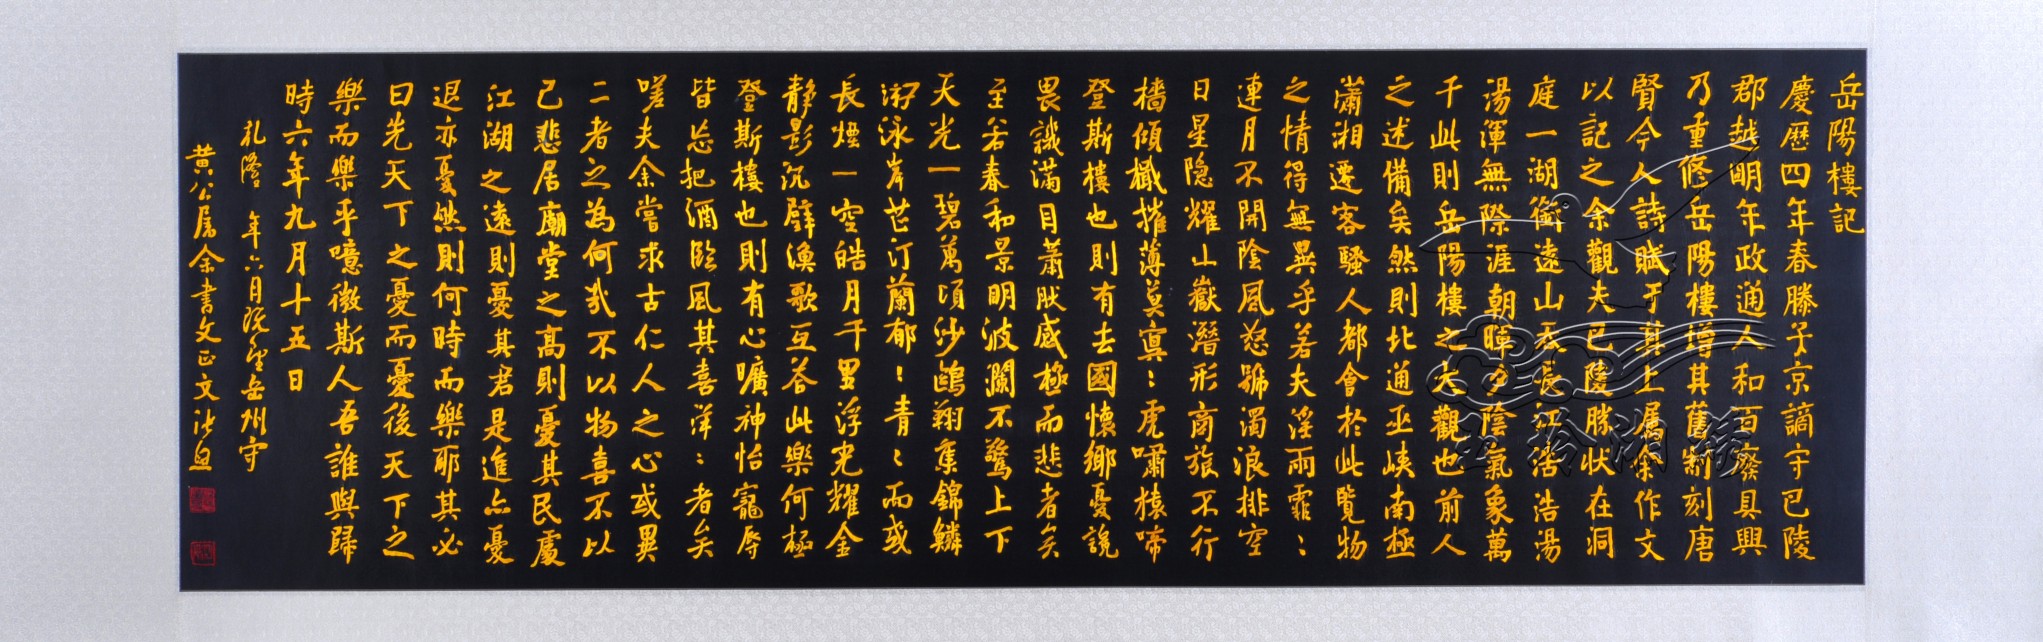 岳陽樓記
慶曆四年春滕子京謫守巴陵
郡越明年政通人和百廢具興
乃重修岳陽樓增其舊制刻唐
賢今人詩賦于其上屬余作文
以記之余觀夫巴陵勝狀在洞
庭一湖銜遠山吞長江浩浩湯
湯渾無際涯朝暉夕陰氣象萬
千此則岳陽樓之大觀也前人
之述備矣然則北通巫峽南極
瀟湘遷客騷人都會於此覽物
之情得無異乎若夫淫雨霏〻
連月不開陰風怒號濁浪排空
日星隐耀山嶽潛形商旅不行
檣傾檝摧薄莫冥〻虎嘯猿啼
登斯樓也則有去國懷鄉憂讒
畏譏滿目蕭然感極而悲者矣
至若春和景明波瀾不驚上下
天光一碧萬頃沙鷗翔集錦鱗
游泳岸芷汀蘭郁〻青〻而或
長煙一空皓月千里浮光耀金
靜影沉璧漁歌互答此樂何極
登斯樓也則有心曠神怡寵辱
皆忘把酒臨風其喜洋〻者矣
嗟夫余嘗求古仁人之心或異
二者之為何哉不以物喜不以
己悲居廟堂之高則憂其民處
江湖之遠則憂其君是進亦憂
退亦憂然則何時而樂耶其必
曰先天下之憂而憂後天下之
樂而樂乎噫微斯人吾誰與歸
時六年九月十五日
乾隆 年六月 岳州守
黃公屬余書文正文